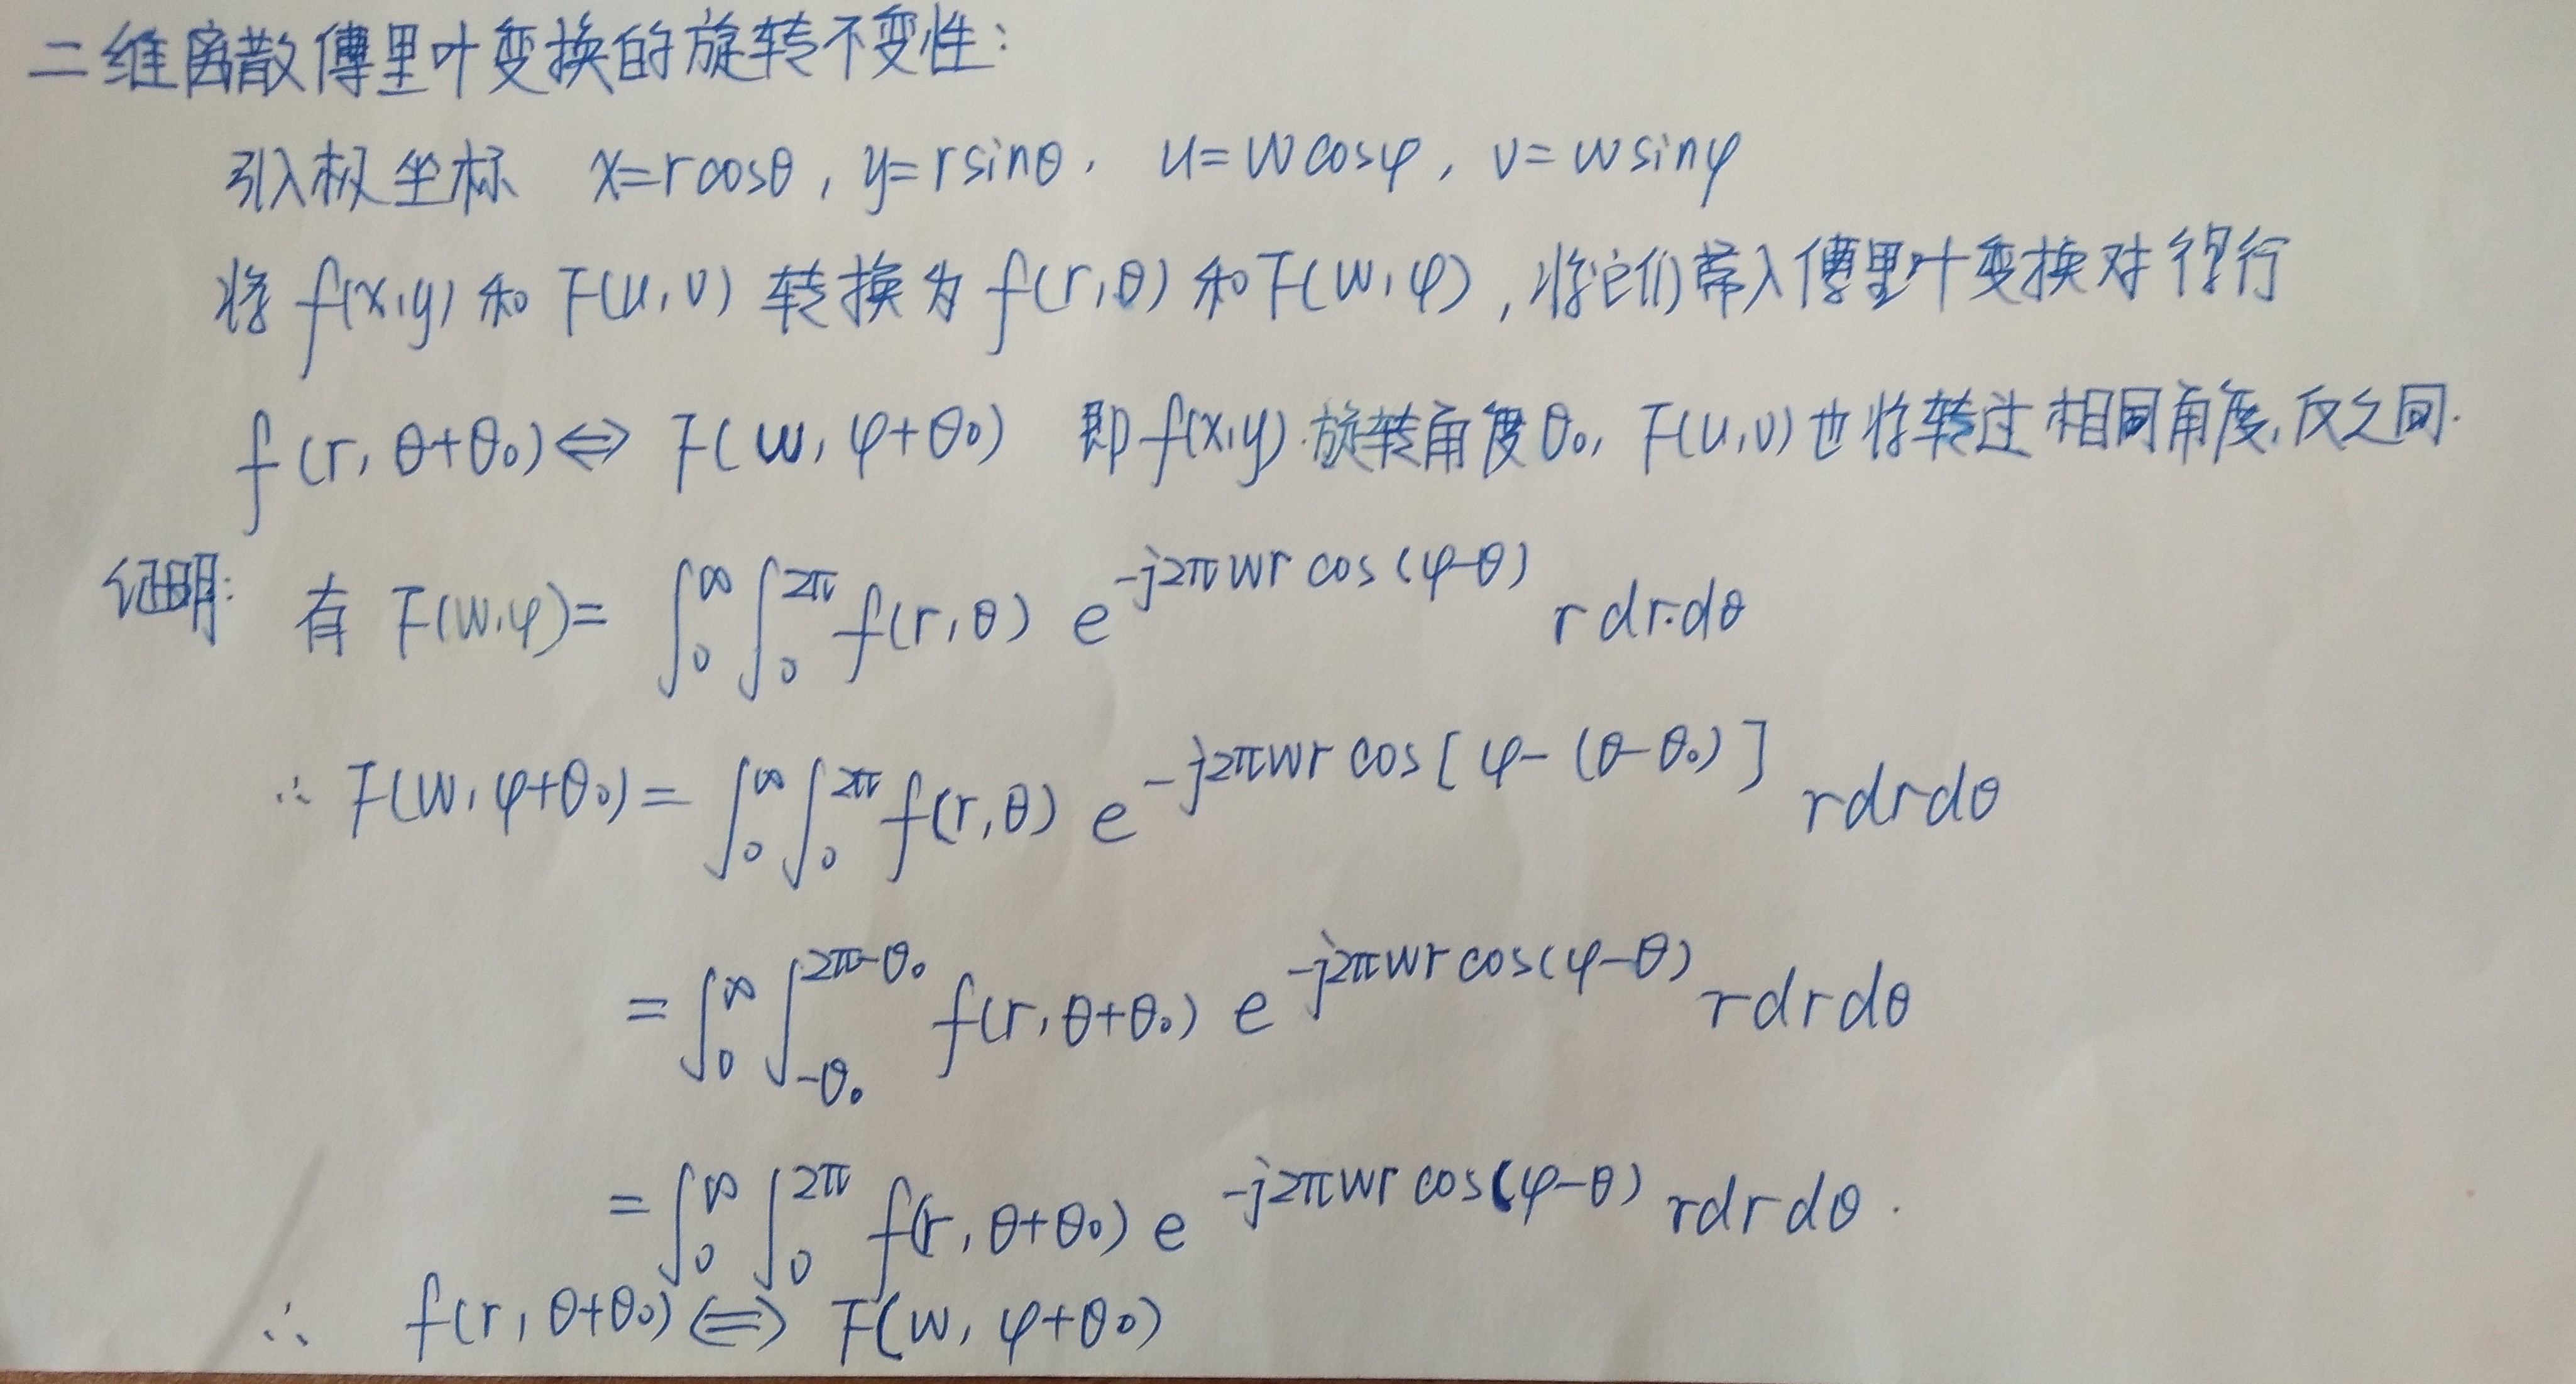 二维离散傅里叶变换的旋转不变性:
引入极坐标 x=rcosθ, y=rsinθ, u=wcosφ, v=wsinφ
将 f(x,y) 和 F(u,v) 转换为 f(r,θ) 和 F(w,φ), 将它们带入傅里叶变换对得行
f(r, θ+θ₀) ⇔ F(w, φ+θ₀) 即 f(x,y) 旋转角度θ₀, F(u,v) 也将转过相同角度, 反之同.
证明: 有 F(w,φ)= ∫₀^∞ ∫₀^{2π} f(r,θ) e^{-j2πwr cos(φ-θ)} r dr·dθ
∴ F(w, φ+θ₀)= ∫₀^∞ ∫₀^{2π} f(r,θ) e^{-j2πwr cos[φ-(θ-θ₀)]} rdrdθ
= ∫₀^∞ ∫_{-θ₀}^{2π-θ₀} f(r, θ+θ₀) e^{-j2πwr cos(φ-θ)} rdrdθ
= ∫₀^∞ ∫₀^{2π} f(r, θ+θ₀) e^{-j2πwr cos(φ-θ)} rdrdθ.
∴ f(r, θ+θ₀) ⇔ F(w, φ+θ₀)